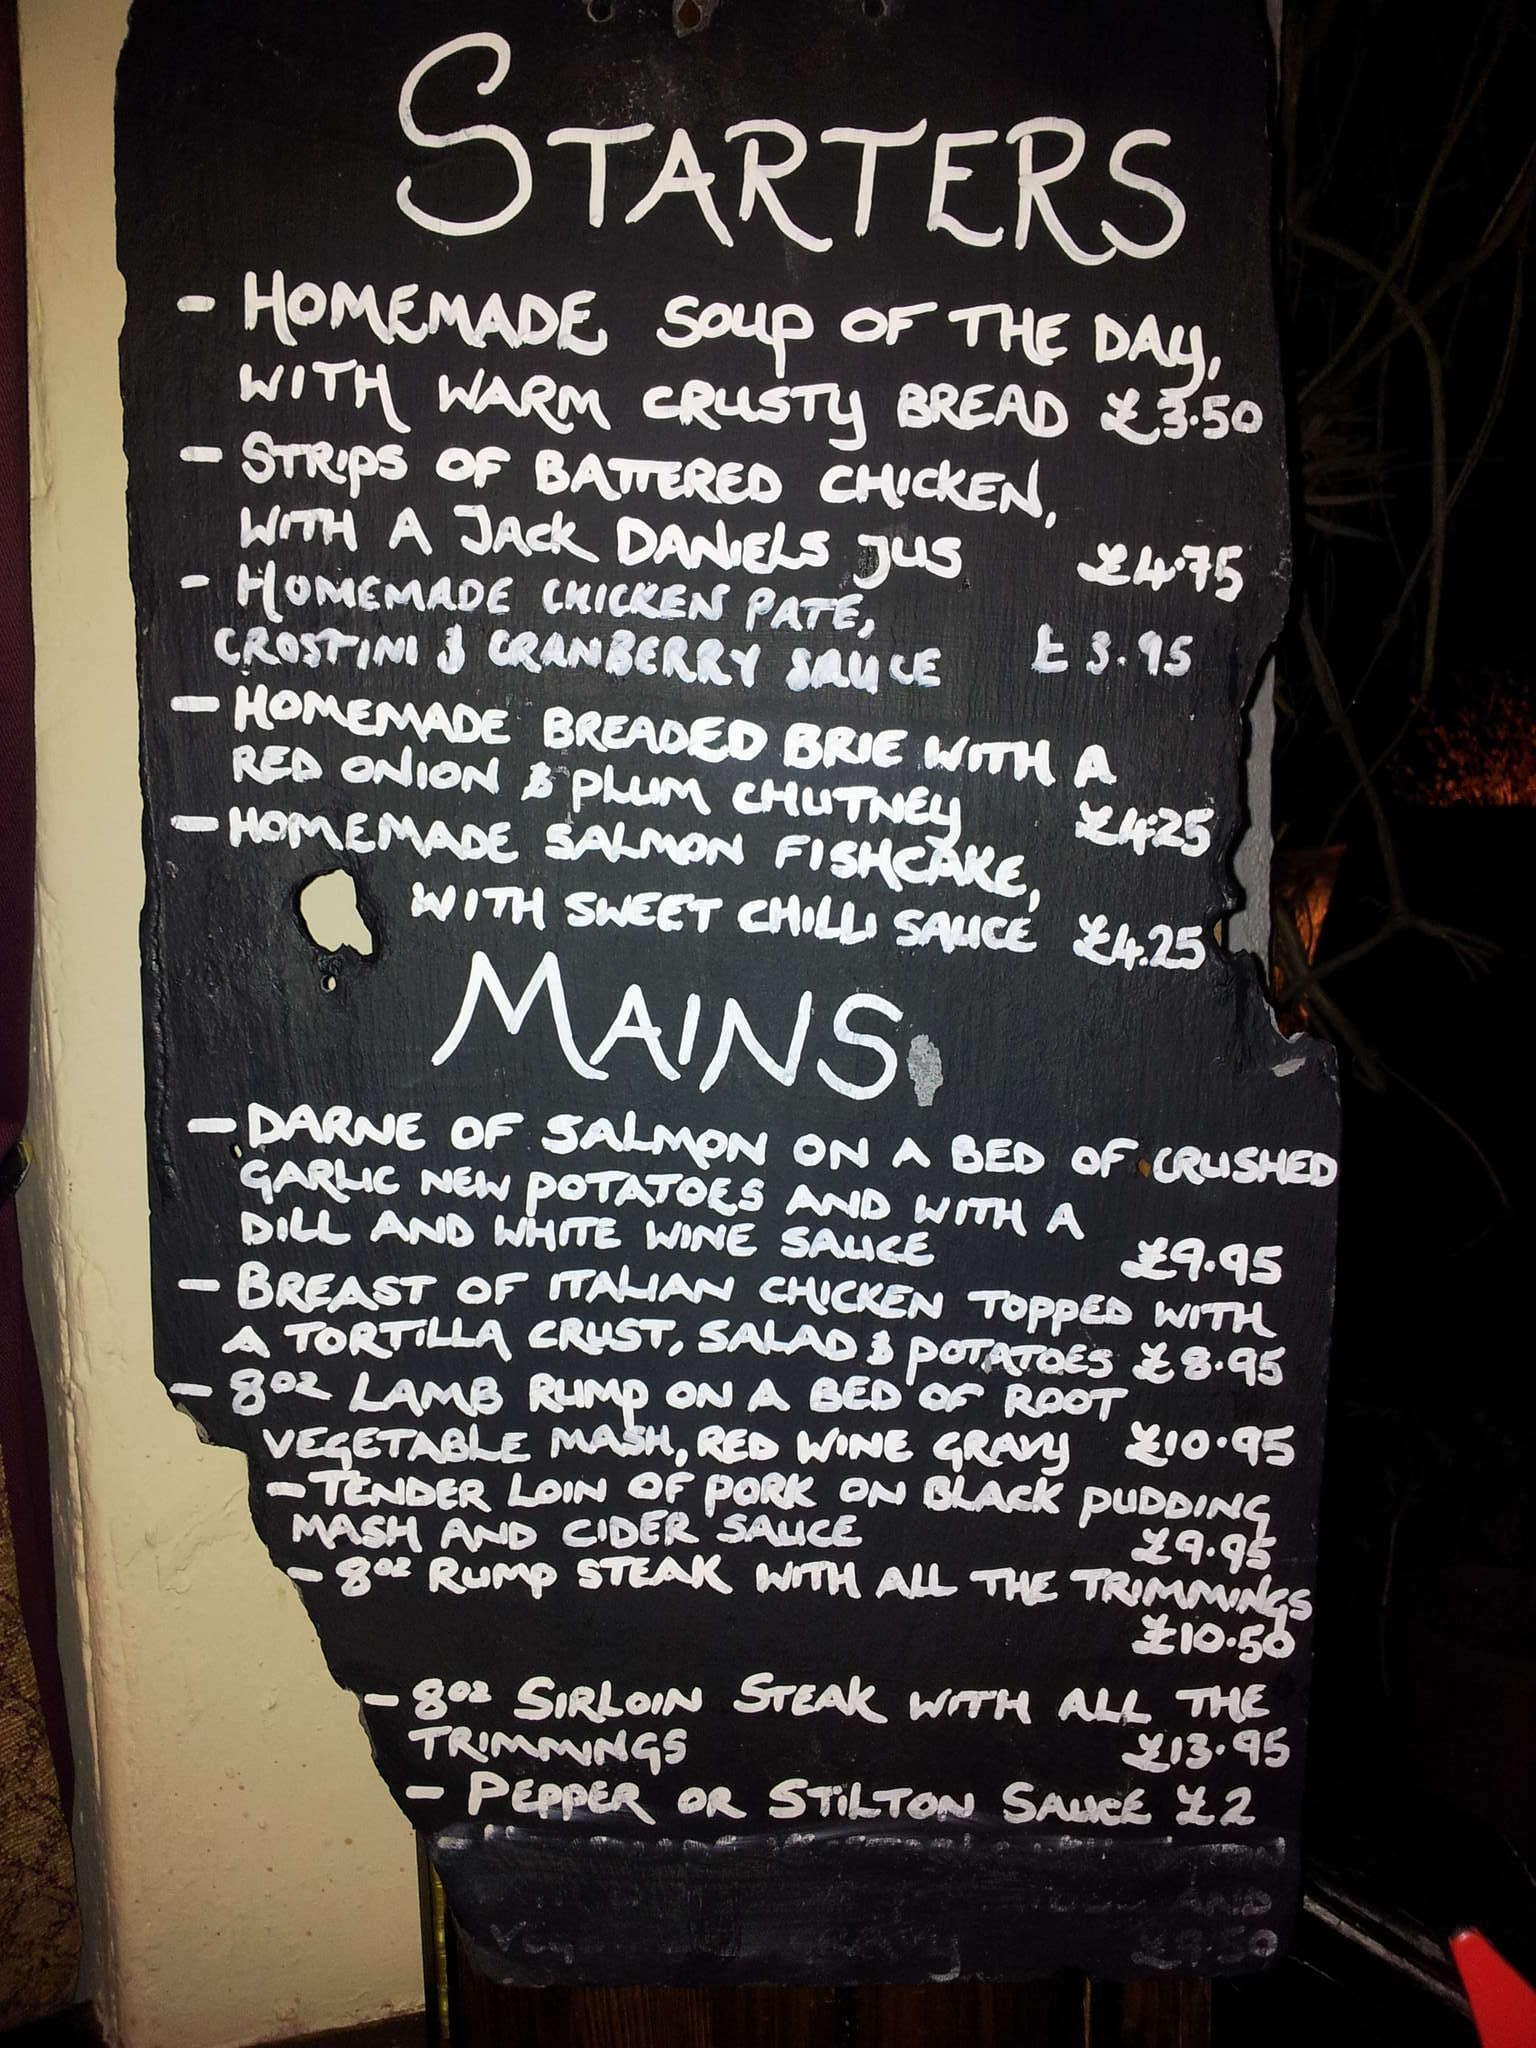 STARTERS
- HOMEMADE SOUP OF THE DAY,
WITH WARM CRUSTY BREAD £3.50
- STRIPS OF BATTERED CHICKEN,
WITH A JACK DANIELS JUS £4.75
- HOMEMADE CHICKEN PATE,
CROSTINI & CRANBERRY SAUCE £3.95
- HOMEMADE BREADED BRIE WITH A
RED ONION & PLUM CHUTNEY £4.25
- HOMEMADE SALMON FISHCAKE,
WITH SWEET CHILLI SAUCE £4.25
MAINS
- DARNE OF SALMON ON A BED OF CRUSHED
GARLIC NEW POTATOES AND WITH A
DILL AND WHITE WINE SAUCE £9.95
- BREAST OF ITALIAN CHICKEN TOPPED WITH
A TORTILLA CRUST, SALAD & POTATOES £8.95
- 8oz LAMB RUMP ON A BED OF ROOT
VEGETABLE MASH, RED WINE GRAVY £10.95
- TENDER LOIN OF PORK ON BLACK PUDDING
MASH AND CIDER SAUCE £9.95
- 8oz RUMP STEAK WITH ALL THE TRIMMINGS
£10.50
- 8oz SIRLOIN STEAK WITH ALL THE
TRIMMINGS £13.95
- PEPPER OR STILTON SAUCE £2
AND
£9.50